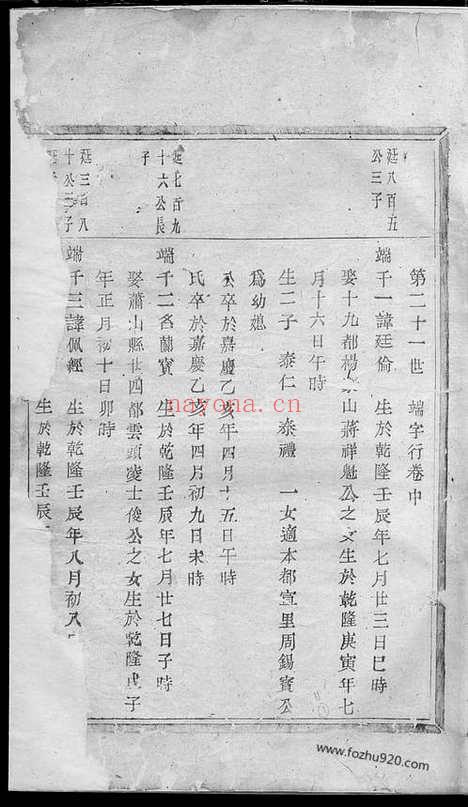 第二十一世　端字行卷中
廷八百五
公三子
端千一諱廷倫　生於乾隆壬辰年七月廿三日巳時
娶十九都楊　山蔣祥魁公之女生於乾隆庚寅年七
月十六日午時
生二子　泰仁　泰禮　一女適本都宣里周錫寶公
爲幼媳
公卒於嘉慶乙亥年四月十五日午時
氏卒於嘉慶乙亥年四月初九日未時
廷七百九
十六公長
子
端千二名蘭寶　生於乾隆壬辰年七月廿七日子時
娶蕭山縣廿四都雲頭凌士俊公之女生於乾隆戊子
年正月初十日卯時
廷三百八
十公三子
端千三諱佩經　生於乾隆壬辰年八月初八
生於乾隆壬辰
nayona.cn
www.fozhu920.com